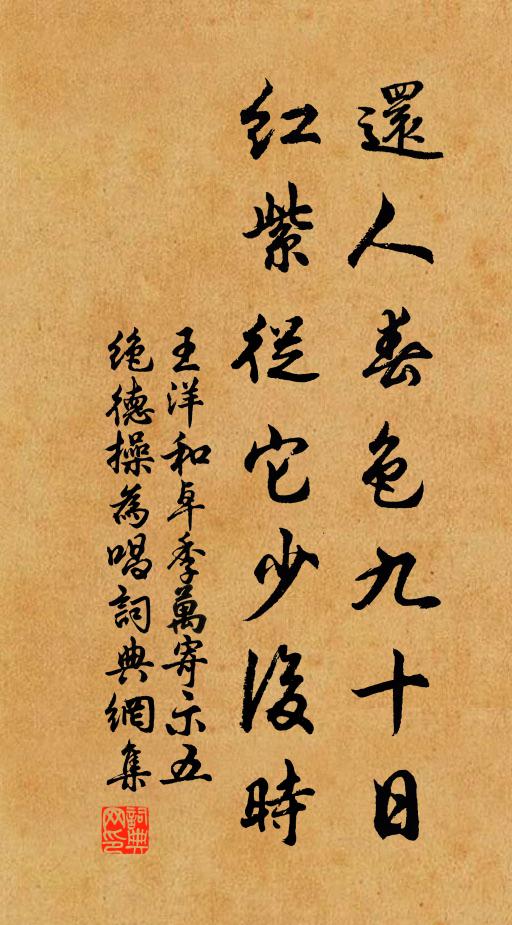 還人春色九十日
紅紫從它少後時
王洋和卓季萬寄示五
絶德操為唱詞典網集
詞典网印